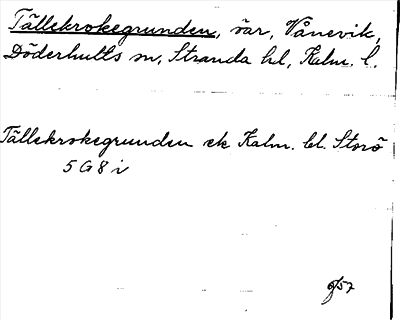 Tällekrokegrunden, sär, Vånevik,
Döderhults sn, Stranda hd, Kalm. l.
Tällekrokegrunden ek Kalm. bl. Storö
5 G 8 i